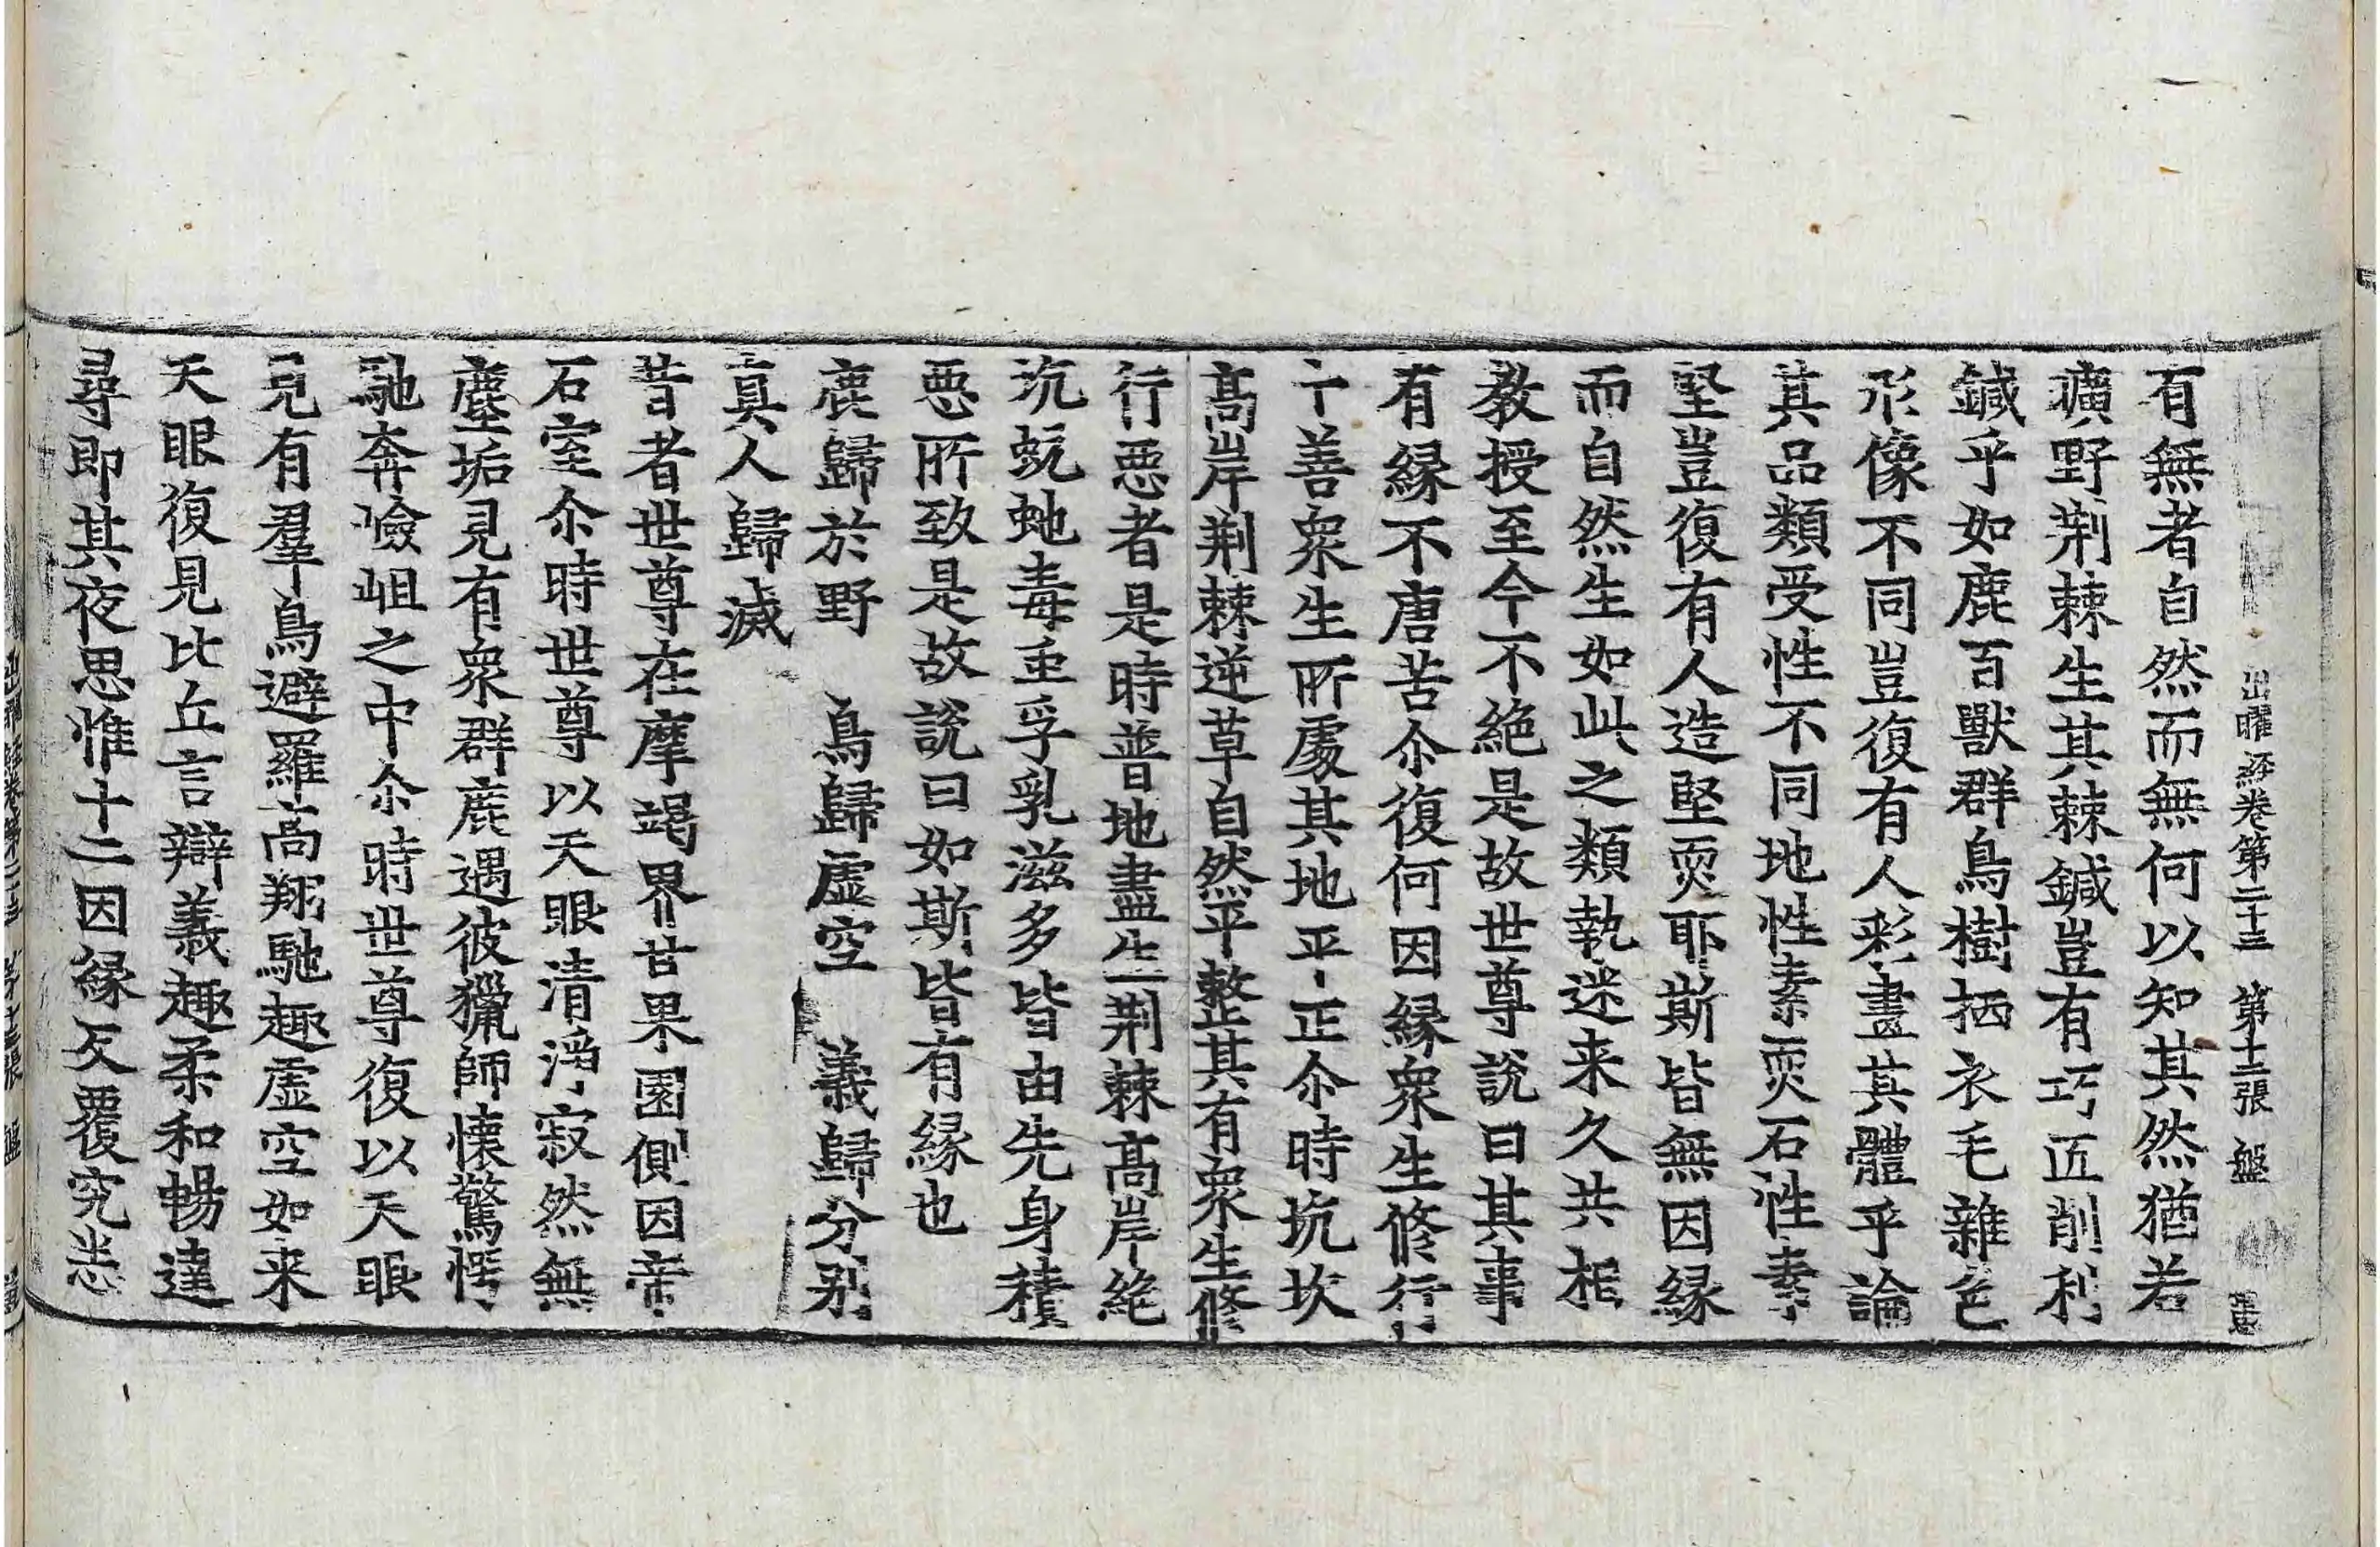 出曜經卷第二十三 第十二張 盤
有無者自然而無何以知其然猶若
曠野荆棘生其棘鍼豈有巧匠削利
鍼乎如鹿百獸群鳥樹栖衣毛雜色
形像不同豈復有人彩畫其體乎論
其品類受性不同地性素耎石性素
堅豈復有人造堅耎耶斯皆無因緣
而自然生如此之類執迷来久共相
教授至今不絶是故世尊說曰其事
有緣不唐苦尒復何因緣衆生修行
十善衆生所處其地平正尒時坑坎
髙岸荆棘逆草自然平整其有衆生修
行惡者是時普地盡生荆棘髙岸絶
坑蚖虵毒𧈧孚乳滋多皆由先身積
惡所致是故說曰如斯皆有緣也
鹿歸於野 鳥歸虛空 義歸分别
真人歸滅
昔者世尊在摩竭界甘果園側因帝
石室尒時世尊以天眼清淨寂然無
塵垢見有衆群鹿遇彼獵師懷驚愕
馳奔嶮岨之中尒時世尊復以天眼
見有羣鳥避羅高翔馳趣虛空如来
天眼復見比丘言辯義趣柔和暢達
尋即其夜思惟十二因緣反覆究悉